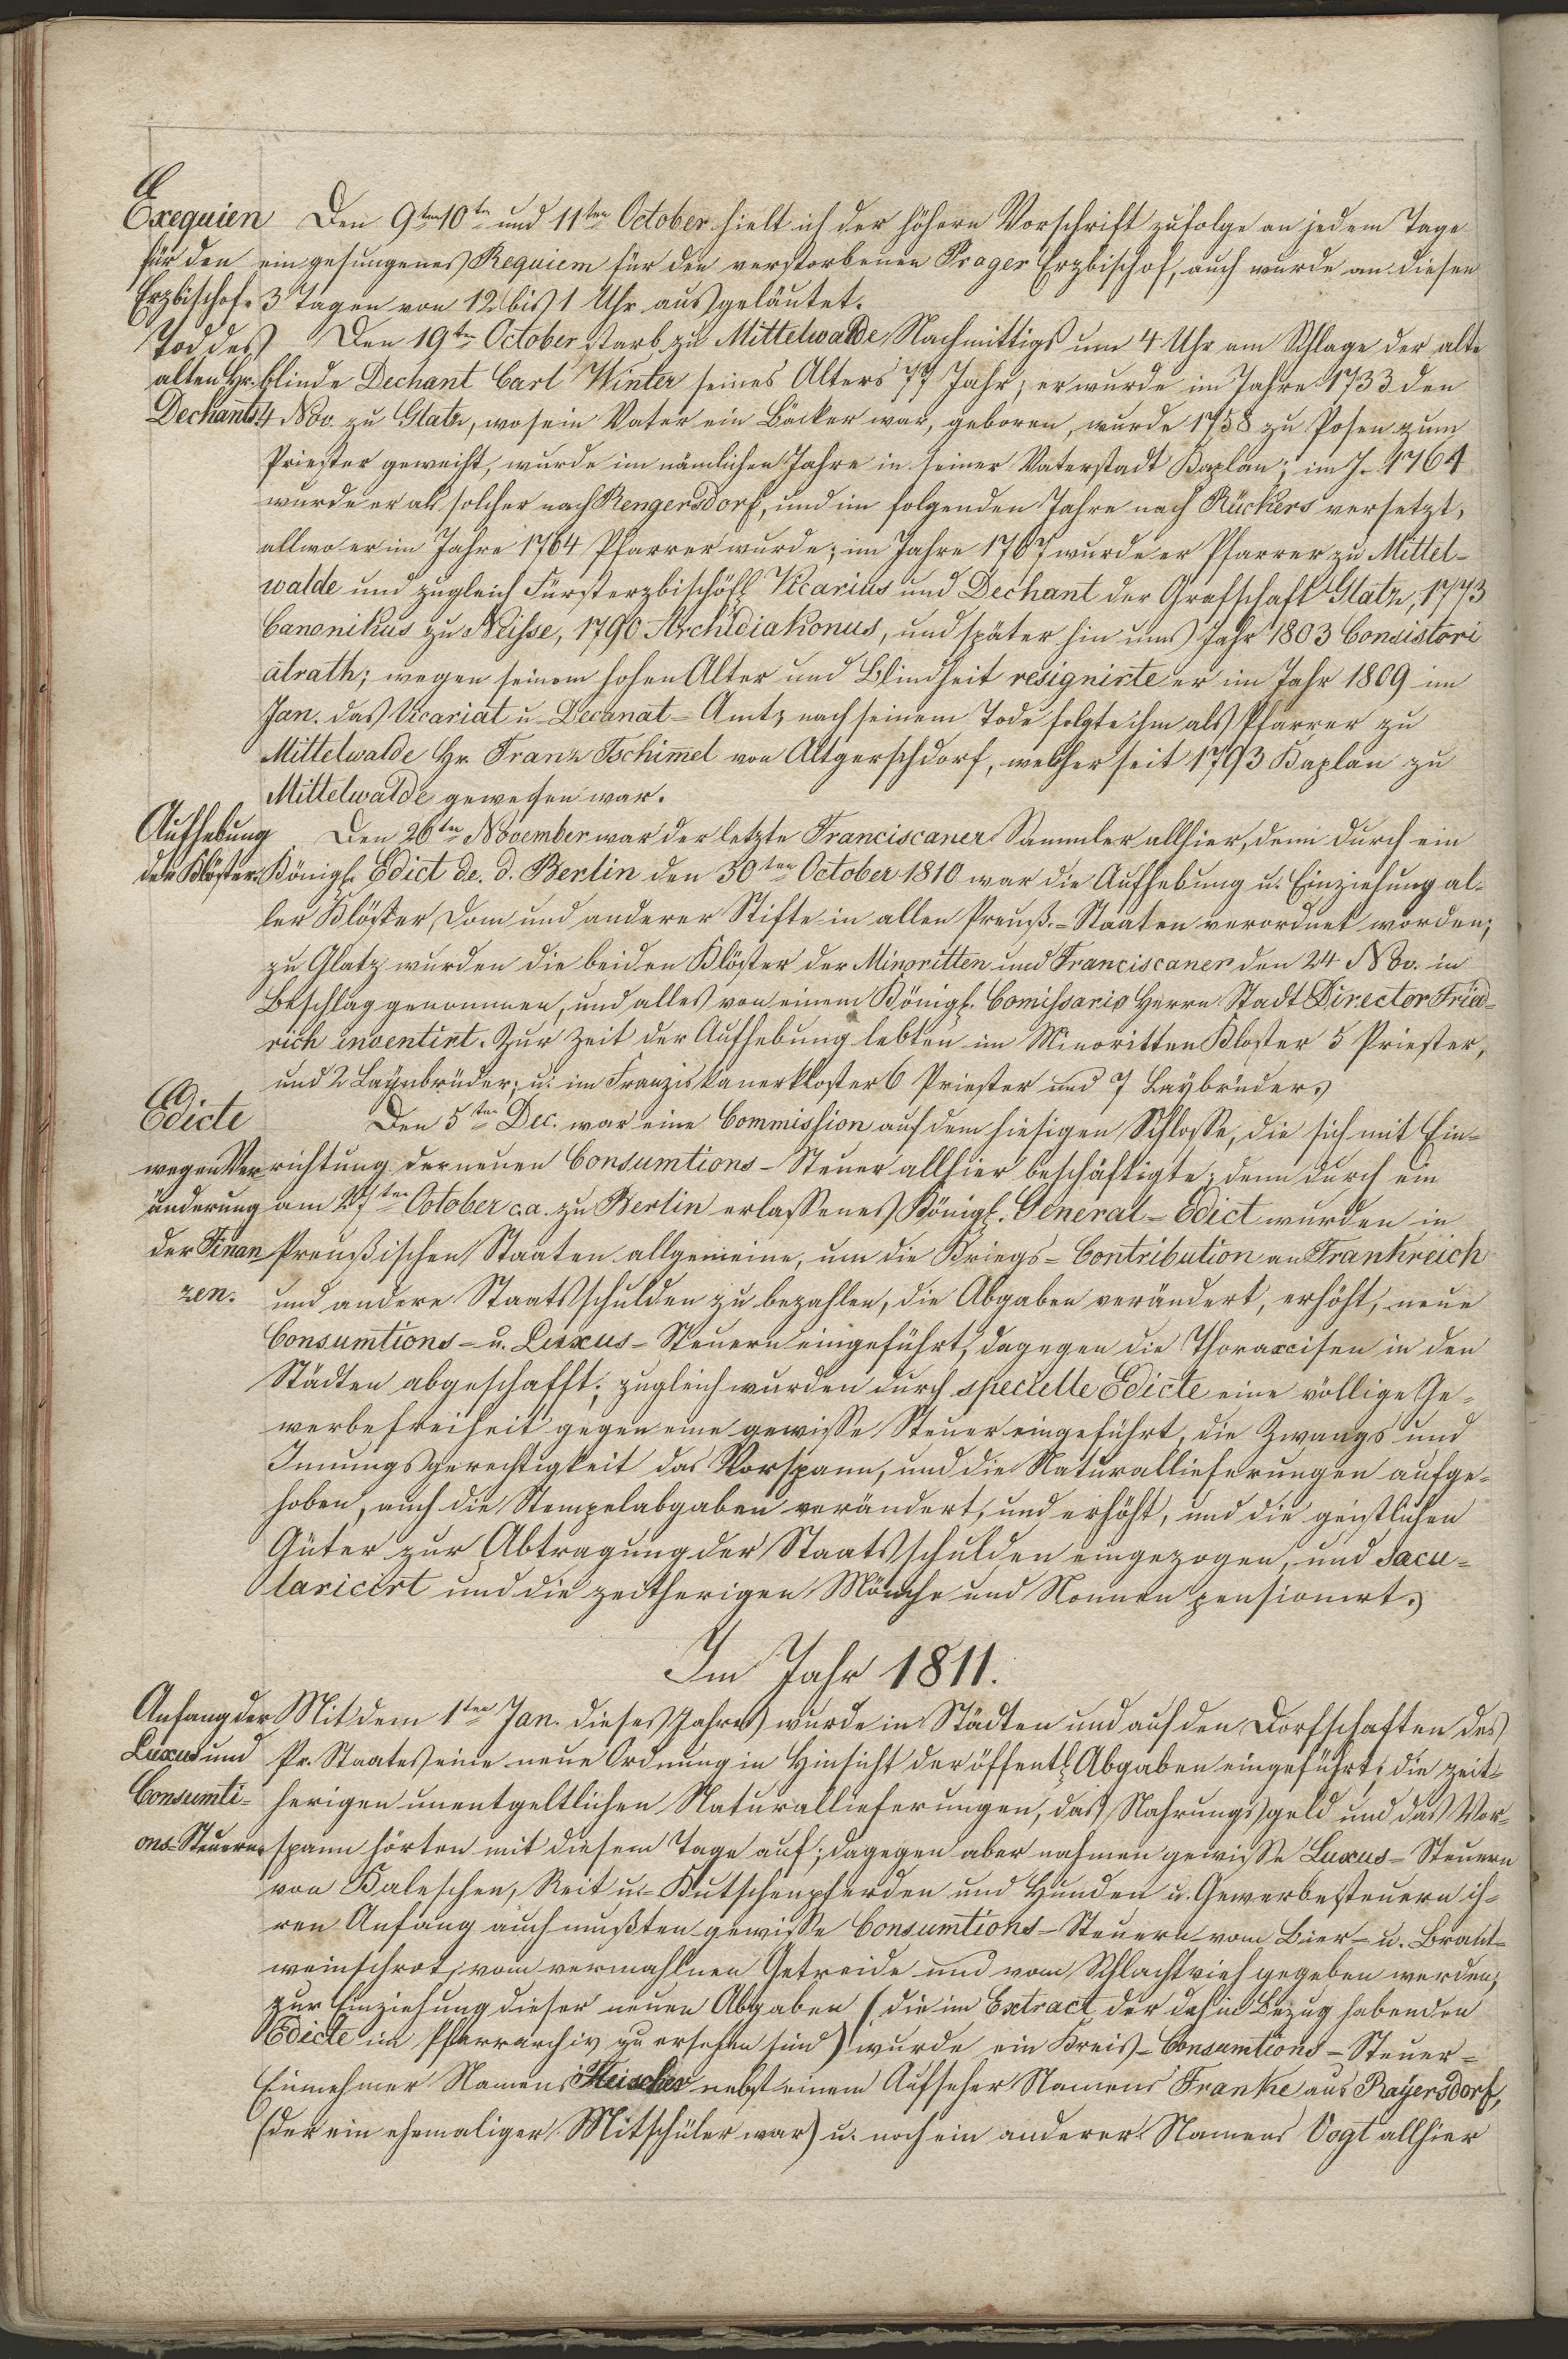 Exequien
für den
Erzbischof.
Den 9ten 10ten und 11ten October hielt ich der höhern Vorschrift zufolge an jedem Tage
ein gesungenes Requiem für den verstorbenen Prager Erzbischof, auch wurde an diesen
3 Tagen von 12 bis 1 Uhr ausgeläutet.
Tod des
alten Hr.
Dechants.
Den 19ten October starb zu Mittelwalde Nachmittigs um 4 Uhr am Schlage der alte
blinde Dechant Carl Winter seines Alters 77 Jahr; er wurde im Jahre 1733 den
4 Nov. zu Glatz, wo sein Vater ein Bäcker war, geboren, wurde 1758 zu Posen zum
Priester geweiht, wurde im nämlichen Jahre in seiner Vaterstadt Kaplan; im J. 1761
wurde er als solcher nach Rengersdorf, und im folgenden Jahre nach Rückers versetzt,
allwo er im Jahre 1764 Pfarrer wurde; im Jahre 1767 wurde er Pfarrer zu Mittel-
walde und zugleich Fürsterzbischöfl. Vicarius und Dechant der Grafschaft Glatz, 1773
Canonikus zu Neisse, 1790 Archidiakonus, und später hin ums Jahr 1803 Consistori
alrath; wegen seinem hohen Alter und Blindheit resignirte er im Jahr 1809 im
Jan. das Vicariat u. Decanat-Amt; nach seinem Tode folgte ihm als Pfarrer zu
Mittelwalde Hr. Franz Tschimel von Altgerschdorf, welcher seit 1793 Kaplan zu
Mittelwalde gewesen war.
Aufhebung
der Klöster.
Den 26ten November war der letzte Franciscaner Sammler allhier, denn durch ein
Königl. Edict de. d. Berlin den 30ten October 1810 war die Aufhebung u. Einziehung al-
ler Klöster, Dom und anderer Stifte in allen Preuß.-Staaten verordnet worden;
zu Glatz wurden die beiden Klöster der Minoritten und Franciscaner den 24 Nov. in
Beschlag genommen, und alles von einem Königl. Comissario Herrn Stadt Director Fried-
rich inventirt. Zur Zeit der Aufhebung lebten im Minoritten Kloster 5 Priester,
und 2 Laynbrüder; u. im Franziskanerkloster 6 Priester und 7 Laybrüder.
Edicte
wegen Ver-
änderung
der Finan-
zen.
Den 5ten Dec. war eine Commission auf dem hiesigen Schlosse, die sich mit Ein-
richtung der neuen Consumtions-Steuer allhier beschäftigte; denn durch ein
am 27ten October c. a. zu Berlin erlassenes Königl. General-Edict wurden in
Preußischen Staaten allgemeine, um die Kriegs-Contribution an Frankreich
und andere Staatsschulden zu bezahlen, die Abgaben verändert, erhöht, neue
Consumtions- u. Luxus-Steuern eingeführt, dagegen die Thoraccisen in den
Städten abgeschafft; zugleich wurden durch specielle Edicte eine völlige Ge-
werbefreiheit gegen eine gewisse Steuer eingeführt, die Zwangs und
Innungsgerechtigkeit das Vorspann, und die Naturallieferungen aufge-
hoben, auch die Stempelabgaben verändert, und erhöht, und die geistlichen
Güter zur Abtragung der Staatsschulden eingezogen, und sacu-
laricirt und die zeitherigen Mönche und Nonnen pensionirt.
Im Jahr 1811.
Anfang der
Luxus und
Consumti-
ons-Steuern.
Mit dem 1ten Jan. dieses Jahres wurde in Städten und auf den Dorfschaften des
Pr. Staates eine neue Ordnung in Hinsicht der öffentl. Abgaben eingeführt; die zeit-
herigen unentgeltlichen Naturallieferungen, das Nahrungsgeld und das Vor-
spann hörten mit diesem Tage auf; dagegen aber nahmen gewisse Luxus-Steuern
von Kaleschen, Reit u.-Kutschenpferden und Hunden u. Gewerbesteuern ih-
ren Anfang auch mußten gewisse Consumtions-Steuern vom Bier- u. Brant-
weinschrot, vom vermahlnen Getreide und vom Schlachtvieh gegeben werden,
zur Einziehung dieser neuen Abgaben (die im Extract der dahin Bezug habenden
Edicte im Pfarrarchiv zu ersehen sind) wurde ein Kreis-Consumtions-Steuer-
Einnehmer Namens nebst einem Aufseher Namens Franke aus Rayersdorf,
(der ein ehemaliger Mitschüler war) u. noch ein anderer Namens Vogt allhier